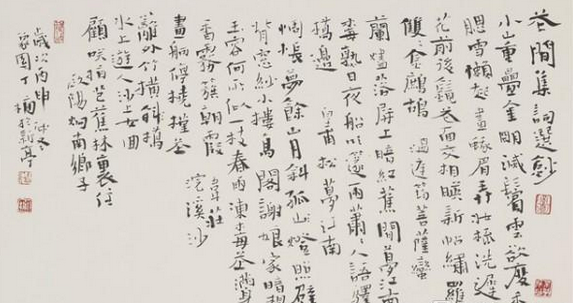 花間集詞選鈔
小山重疊金明滅鬢雲欲度香
腮雪懶起畫蛾眉弄妝梳洗遲
花前後鏡花面交相映新帖繡羅
雙雙金鷓鴣 溫庭筠菩薩蠻
蘭燼落屏上暗紅蕉閒夢江南
梅熟日夜船吹笛雨蕭蕭人語驛
橋邊 甫松夢江南
惆悵夢餘山月斜孤山燈照壁
背窗紗小樓高閣謝娘家暗想
玉容何所似一枝春雪凍梅花滿
香霧簇朝霞 韋莊
浣溪沙
畫舸停橈槿花
籬外竹橫斜橋
水上遊人沙上女回
顧笑指芭蕉林裏住
歐陽炯南鄉子
歲次丙申